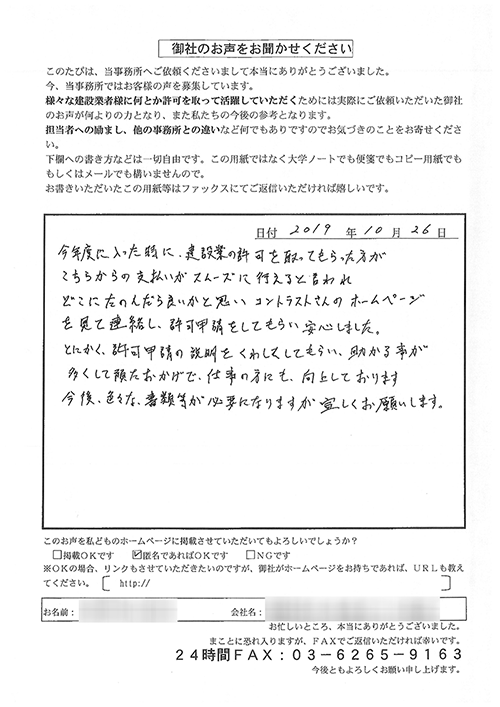 御社のお声をお聞かせください
このたびは、当事務所へご依頼くださいまして本当にありがとうございました。
今、当事務所ではお客様の声を募集しています。
様々な建設業者様に何とか許可を取って活躍していただくためには実際にご依頼いただいた御社
のお声が何よりの力となり、また私たちの今後の参考となります。
担当者への励まし、他の事務所との違いなど何でもありですのでお気づきのことをお寄せくださ
い。
下欄への書き方などは一切自由です。この用紙ではなく大学ノートでも便箋でもコピー用紙でも
もしくはメールでも構いませんので。
お書きいただいたこの用紙等はファックスにてご返信いただければ嬉しいです。
日付 2019 年 10 月 26 日
今年度に入った時に、建設業の許可を取ってもらった方が
こちらからの支払いがスムーズに行えると言われ
どこにたのんだら良いかと思い コントラストさんの ホームページ
を見て連絡し、許可申請をしてもらい 安心しました。
とにかく、許可申請の説明を くわしくしてもらい、助かる事が
多くして頂たおかげで、仕事の方にも、向上しております
今後、色々な、書類等が必要になりますが 宜しくお願いします。
このお声を私どものホームページに掲載させていただいてもよろしいでしょうか?
□掲載OKです ☑匿名であればOKです □NGです
※OKの場合、リンクもさせていただきたいのですが、御社がホームページをお持ちであれば、URLも教え
てください。 [ http:// ]
お名前: 会社名:
お忙しいところ、本当にありがとうございました。
まことに恐れ入りますが、FAXでご返信いただければ幸いです。
24時間FAX:03-6265-9163
今後ともよろしくお願い申し上げます。